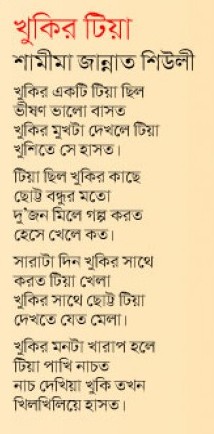 খুকির টিয়া
শামীমা জান্নাত শিউলী
খুকির একটি টিয়া ছিল
ভীষণ ভালো বাসত
খুকির মুখটা দেখলে টিয়া
খুশিতে সে হাসত।
টিয়া ছিল খুকির কাছে
ছোট্ট বন্ধুর মতো
দু'জন মিলে গল্প করত
হেসে খেলে কত।
সারাটা দিন খুকির সাথে
করত টিয়া খেলা
খুকির সাথে ছোট্ট টিয়া
দেখতে যেত মেলা।
খুকির মনটা খারাপ হলে
টিয়া পাখি নাচত
নাচ দেখিয়া খুকি তখন
খিলখিলিয়ে হাসত।